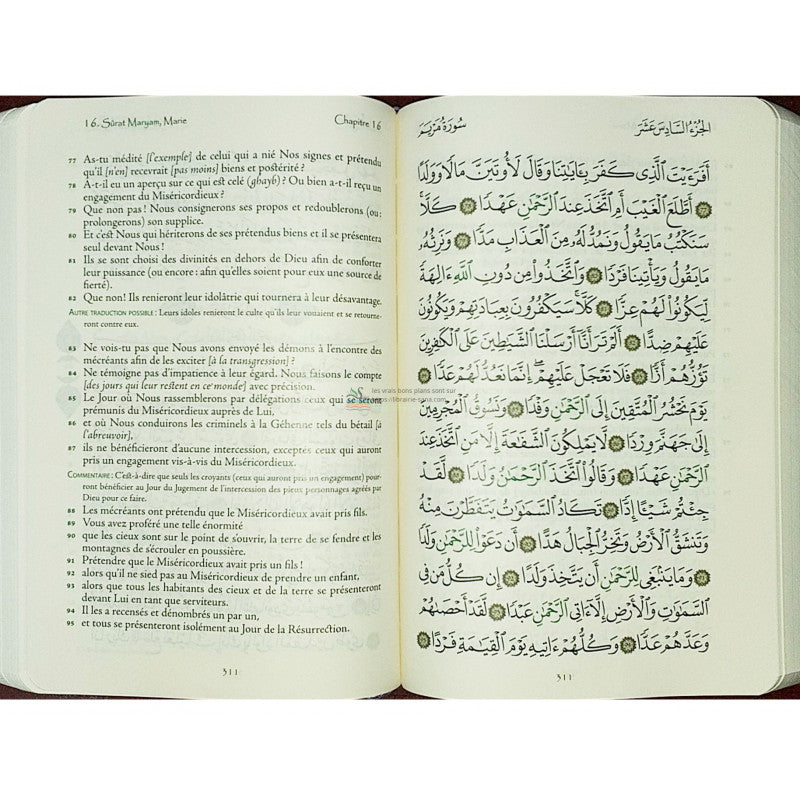 16. Sûrat Maryam, Marie
Chapitre 16
77 As-tu médité [l'exemple] de celui qui a nié Nos signes et prétendu
qu'il [n'en] recevrait [pas moins] biens et postérité ?
78 A-t-il eu un aperçu sur ce qui est celé (ghayb) ? Ou bien a-t-il reçu un
engagement du Miséricordieux ?
79 Que non pas ! Nous consignerons ses propos et redoublerons (ou :
prolongerons) son supplice.
80 Et c'est Nous qui hériterons de ses prétendus biens et il se présentera
seul devant Nous !
81 Ils se sont choisi des divinités en dehors de Dieu afin de conforter
leur puissance (ou encore : afin qu'elles soient pour eux une source de
fierté).
82 Que non! Ils renieront leur idolâtrie qui tournera à leur désavantage.
Autre traduction possible : Leurs idoles renieront le culte qu'ils leur vouaient et se retourne-
ront contre eux.
83 Ne vois-tu pas que Nous avons envoyé les démons à l'encontre des
mécréants afin de les exciter [à la transgression] ?
84 Ne témoigne pas d'impatience à leur égard. Nous faisons le compte
[des jours qui leur restent en ce monde] avec précision.
85 Le Jour où Nous rassemblerons par délégations ceux qui se seront
prémunis du Miséricordieux auprès de Lui,
86 et où Nous conduirons les criminels à la Géhenne tels du bétail [à
l'abreuvoir],
87 ils ne bénéficieront d'aucune intercession, exceptés ceux qui auront
pris un engagement vis-à-vis du Miséricordieux.
Commentaire : C'est-à-dire que seuls les croyants (ceux qui auront pris un engagement) pour-
ront bénéficier au Jour du Jugement de l'intercession des pieux personnages agréés par
Dieu pour ce faire.
88 Les mécréants ont prétendu que le Miséricordieux avait pris fils.
89 Vous avez proféré une telle énormité
90 que les cieux sont sur le point de s'ouvrir, la terre de se fendre et les
montagnes de s'écrouler en poussière.
91 Prétendre que le Miséricordieux avait pris un fils !
92 alors qu'il ne sied pas au Miséricordieux de prendre un enfant,
93 alors que tous les habitants des cieux et de la terre se présenteront
devant Lui en tant que serviteurs.
94 Il les a recensés et dénombrés un par un,
95 et tous se présenteront isolément au Jour de la Résurrection.
311
les vrais bons plans sont sur
https://librairie-sana.com
الجزء السادس عشر
سورة مريم
أَفَرَءَيْتَ ٱلَّذِى كَفَرَ بِـَٔايَـٰتِنَا وَقَالَ لَأُوتَيَنَّ مَالًا وَوَلَدًا
٧٧ أَطَّلَعَ ٱلْغَيْبَ أَمِ ٱتَّخَذَ عِندَ ٱلرَّحْمَـٰنِ عَهْدًا ٧٨ كَلَّا
سَنَكْتُبُ مَا يَقُولُ وَنَمُدُّ لَهُۥ مِنَ ٱلْعَذَابِ مَدًّا ٧٩ وَنَرِثُهُۥ
مَا يَقُولُ وَيَأْتِينَا فَرْدًا ٨٠ وَٱتَّخَذُوا۟ مِن دُونِ ٱللَّهِ ءَالِهَةً
لِّيَكُونُوا۟ لَهُمْ عِزًّا ٨١ كَلَّا سَيَكْفُرُونَ بِعِبَادَتِهِمْ وَيَكُونُونَ
عَلَيْهِمْ ضِدًّا ٨٢ أَلَمْ تَرَ أَنَّآ أَرْسَلْنَا ٱلشَّيَـٰطِينَ عَلَى ٱلْكَـٰفِرِينَ
تَؤُزُّهُمْ أَزًّا ٨٣ فَلَا تَعْجَلْ عَلَيْهِمْ إِنَّمَا نَعُدُّ لَهُمْ عَدًّا ٨٤
يَوْمَ نَحْشُرُ ٱلْمُتَّقِينَ إِلَى ٱلرَّحْمَـٰنِ وَفْدًا ٨٥ وَنَسُوقُ ٱلْمُجْرِمِينَ
إِلَىٰ جَهَنَّمَ وِرْدًا ٨٦ لَّا يَمْلِكُونَ ٱلشَّفَـٰعَةَ إِلَّا مَنِ ٱتَّخَذَ عِندَ
ٱلرَّحْمَـٰنِ عَهْدًا ٨٧ وَقَالُوا۟ ٱتَّخَذَ ٱلرَّحْمَـٰنُ وَلَدًا ٨٨ لَّقَدْ
جِئْتُمْ شَيْـًٔا إِدًّا ٨٩ تَكَادُ ٱلسَّمَـٰوَٰتُ يَتَفَطَّرْنَ مِنْهُ
وَتَنشَقُّ ٱلْأَرْضُ وَتَخِرُّ ٱلْجِبَالُ هَدًّا ٩٠ أَن دَعَوْا۟ لِلرَّحْمَـٰنِ وَلَدًا
٩١ وَمَا يَنۢبَغِى لِلرَّحْمَـٰنِ أَن يَتَّخِذَ وَلَدًا ٩٢ إِن كُلُّ مَن فِى
ٱلسَّمَـٰوَٰتِ وَٱلْأَرْضِ إِلَّآ ءَاتِى ٱلرَّحْمَـٰنِ عَبْدًا ٩٣ لَّقَدْ أَحْصَىٰهُمْ
وَعَدَّهُمْ عَدًّا ٩٤ وَكُلُّهُمْ ءَاتِيهِ يَوْمَ ٱلْقِيَـٰمَةِ فَرْدًا ٩٥
311